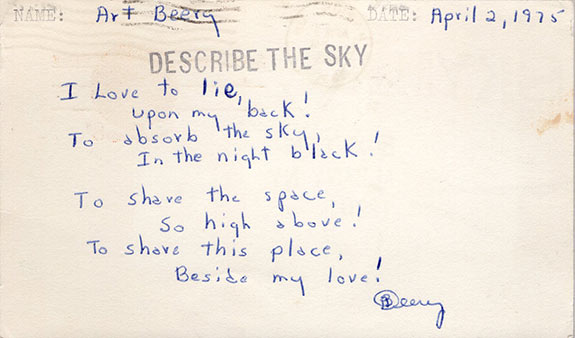 NAME: Art Beery DATE: April 2, 1975
DESCRIBE THE SKY
I Love to lie,
upon my back!
To absorb the sky,
In the night black!
To share the space,
So high above!
To share this place,
Beside my love!
Beery